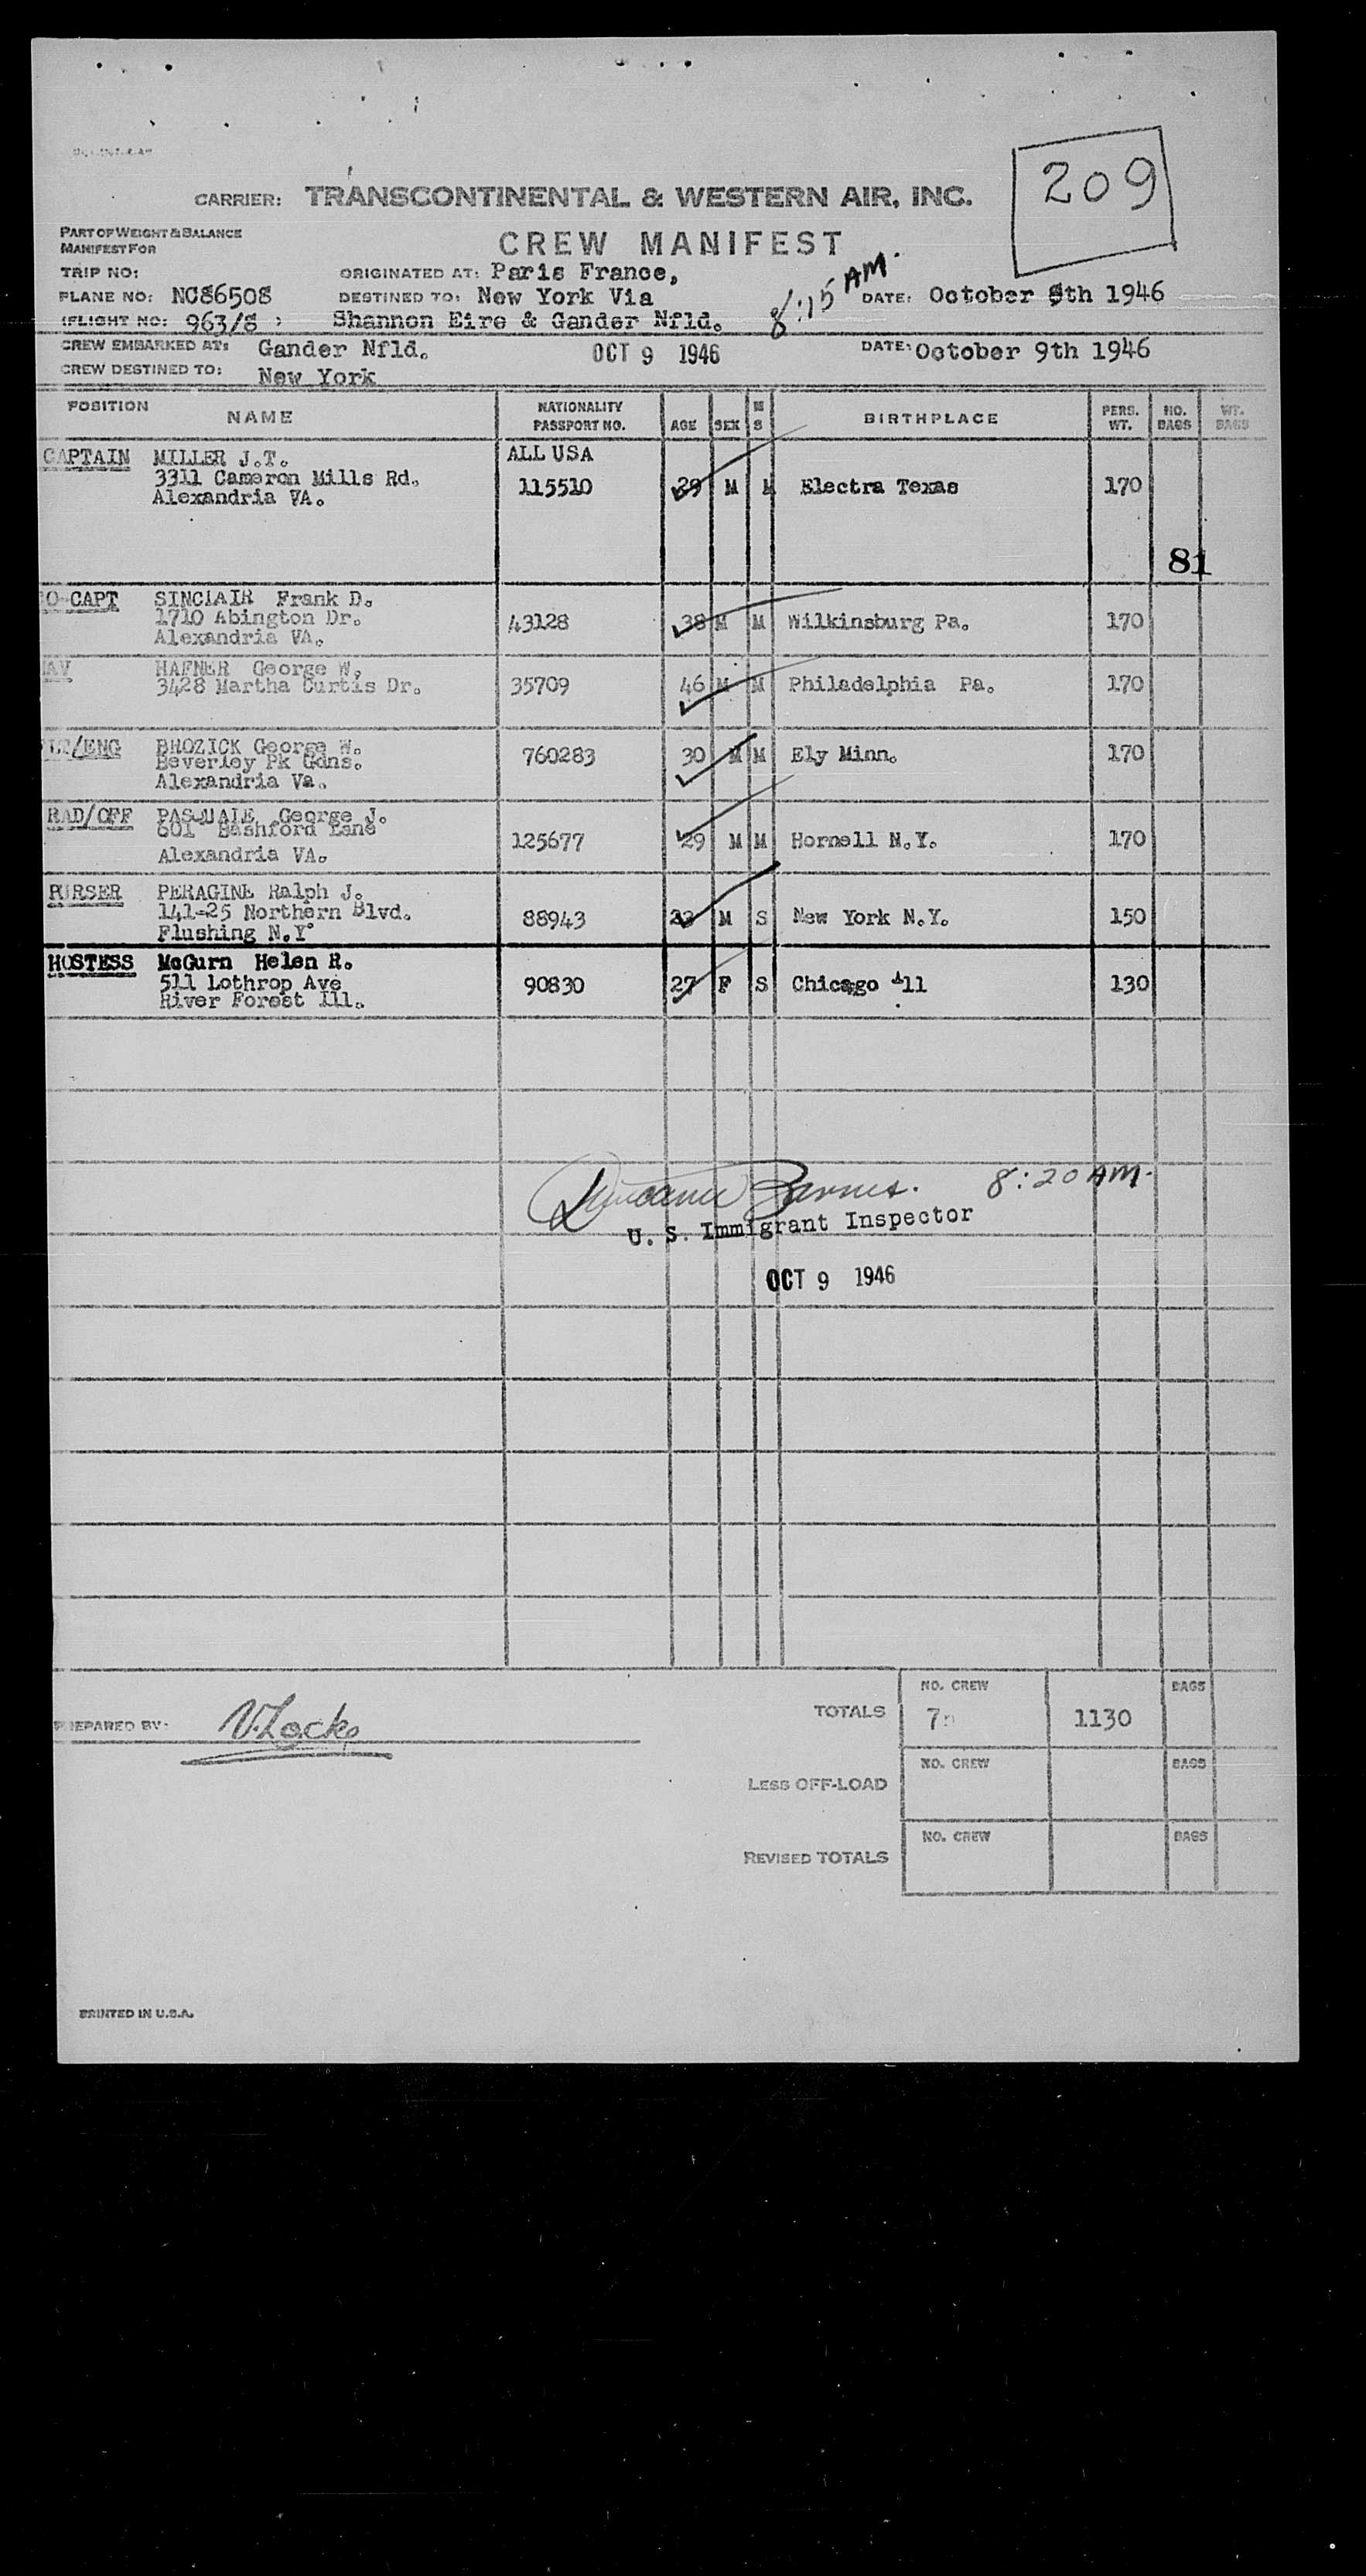 209
CARRIER: TRANSCONTINENTAL & WESTERN AIR, INC.
PART OF WEIGHT & BALANCE
MANIFEST FOR
CREW MANIFEST
TRIP NO:
ORIGINATED AT: Paris France,
8:15 AM.
PLANE NO: NC86508
DESTINED TO: New York Via
DATE: October 8th 1946
(FLIGHT NO: 963/8 )
Shannon Eire & Gander Nfld.
CREW EMBARKED AT: Gander Nfld.
OCT 9 1946
DATE: October 9th 1946
CREW DESTINED TO: New York
POSITION NAME NATIONALITY PASSPORT NO. AGE SEX M S BIRTHPLACE PERS. WT. NO. BAGS WT. BAGS
ALL USA
CAPTAIN MILLER J.T.
3311 Cameron Mills Rd. 115510 29 M M Electra Texas 170
Alexandria VA.
81
O-CAPT SINCLAIR Frank D.
1710 Abington Dr. 43128 38 M M Wilkinsburg Pa. 170
Alexandria VA.
AV HAFNER George W,
3428 Martha Curtis Dr. 35709 46 M M Philadelphia Pa. 170
LT/ENG BROZICK George W.
Beverley Pk Gdns. 760283 30 M M Ely Minn. 170
Alexandria Va.
RAD/OFF PASQUALE George J.
601 Bashford Lane 125677 29 M M Hornell N.Y. 170
Alexandria VA.
PURSER PERAGINE Ralph J.
141-25 Northern Blvd. 88943 M S New York N.Y. 150
Flushing N.Y
HOSTESS McGurn Helen R.
511 Lothrop Ave 90830 27 F S Chicago Ill 130
River Forest Ill.
8:20 AM.
U. S. Immigrant Inspector
OCT 9 1946
PREPARED BY: V. Locke
TOTALS NO. CREW 7 1130 BAGS
LESS OFF-LOAD NO. CREW BAGS
REVISED TOTALS NO. CREW BAGS
PRINTED IN U.S.A.